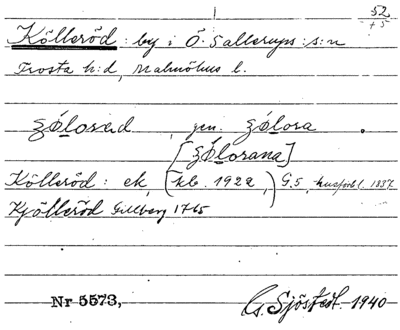 52
+5
Kölleröd : by i Ö. Sallerups : s:n
Frosta h:d, Malmöhus l.
gen.
Kölleröd : ek, (kb. 1922,) G.5, husförl. 1837
Kjölleröd Gillberg 1765
Nr 5573,
G. Sjöstedt. 1940